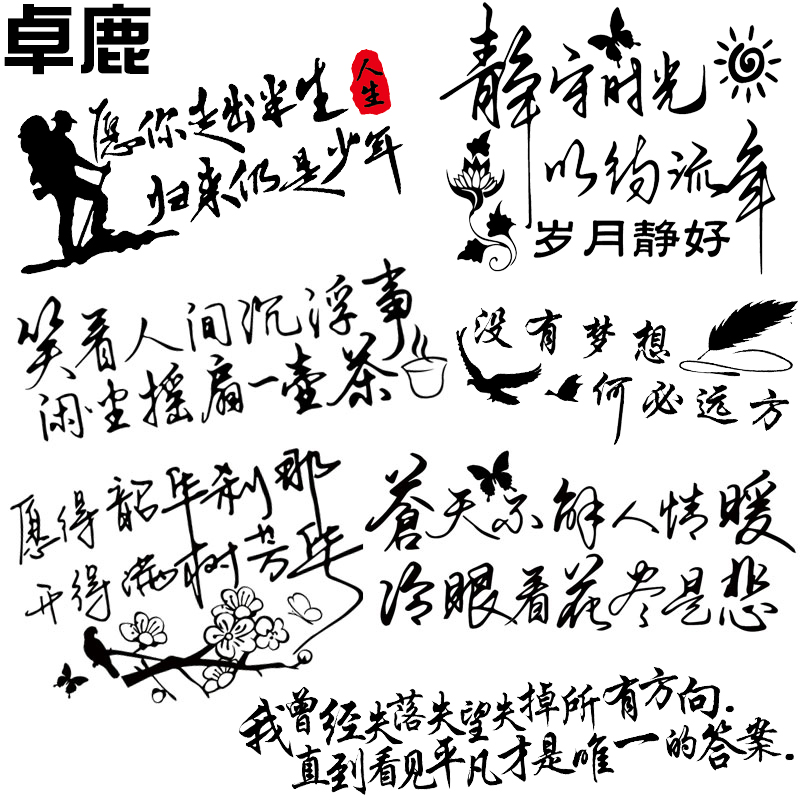 卓鹿
愿你走出半生
人生
归来仍是少年
静守时光
以约流年
岁月静好
笑看人间沉浮事
闲坐摇扇一壶茶
没有梦想
何必远方
愿得韶华刹那
开得满树芳华
苍天不解人情暖
冷眼看花尽是悲
我曾经失落失望失掉所有方向.
直到看见平凡才是唯一的答案.